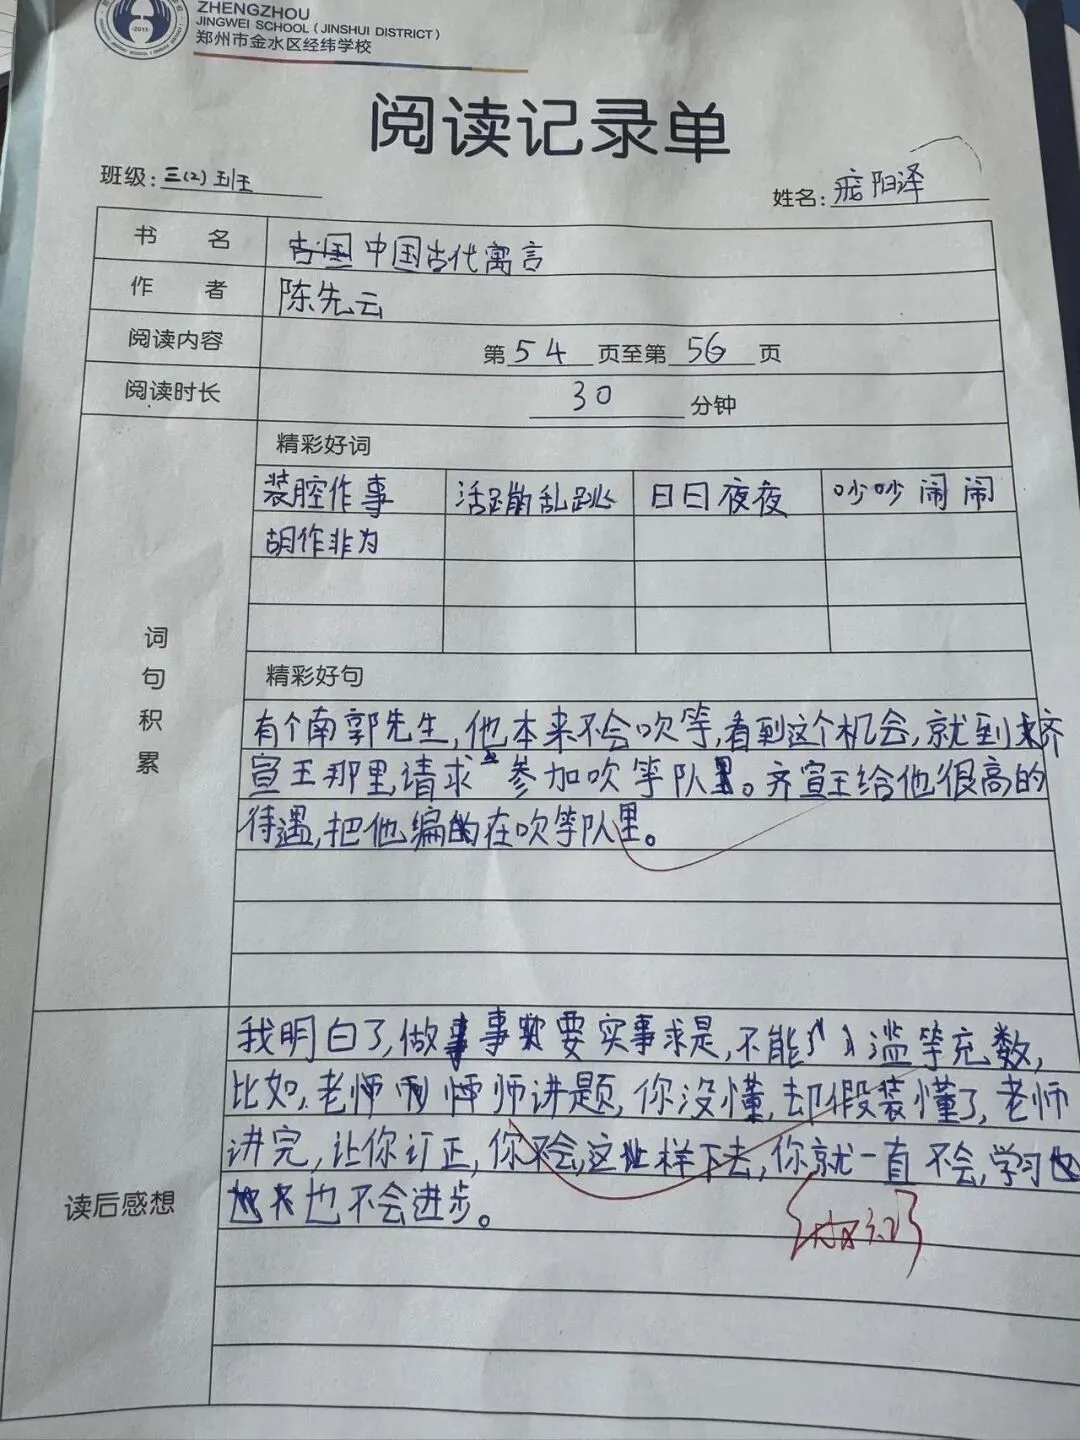 ZHENGZHOU
JINGWEI SCHOOL (JINSHUI DISTRICT)
郑州市金水区经纬学校
阅读记录单
班级:三(2)班
姓名:庞阳泽
书 名 中国古代寓言
作 者 陈先云
阅读内容 第54页至第56页
阅读时长 30分钟
词句积累
精彩好词
装腔作事 活蹦乱跳 日日夜夜 吵吵闹闹
胡作非为
精彩好句
有个南郭先生,他本来不会吹竽,看到这个机会,就到齐
宣王那里,请求参加吹竽队里。齐宣王给他很高的
待遇,把他编在吹竽队里。
读后感想
我明白了,做事要实事求是,不能滥竽充数,
比如,老师讲题,你没懂,却假装懂了,老师
讲完,让你订正,你不会,这样下去,你就一直不会,学习
也不会进步。